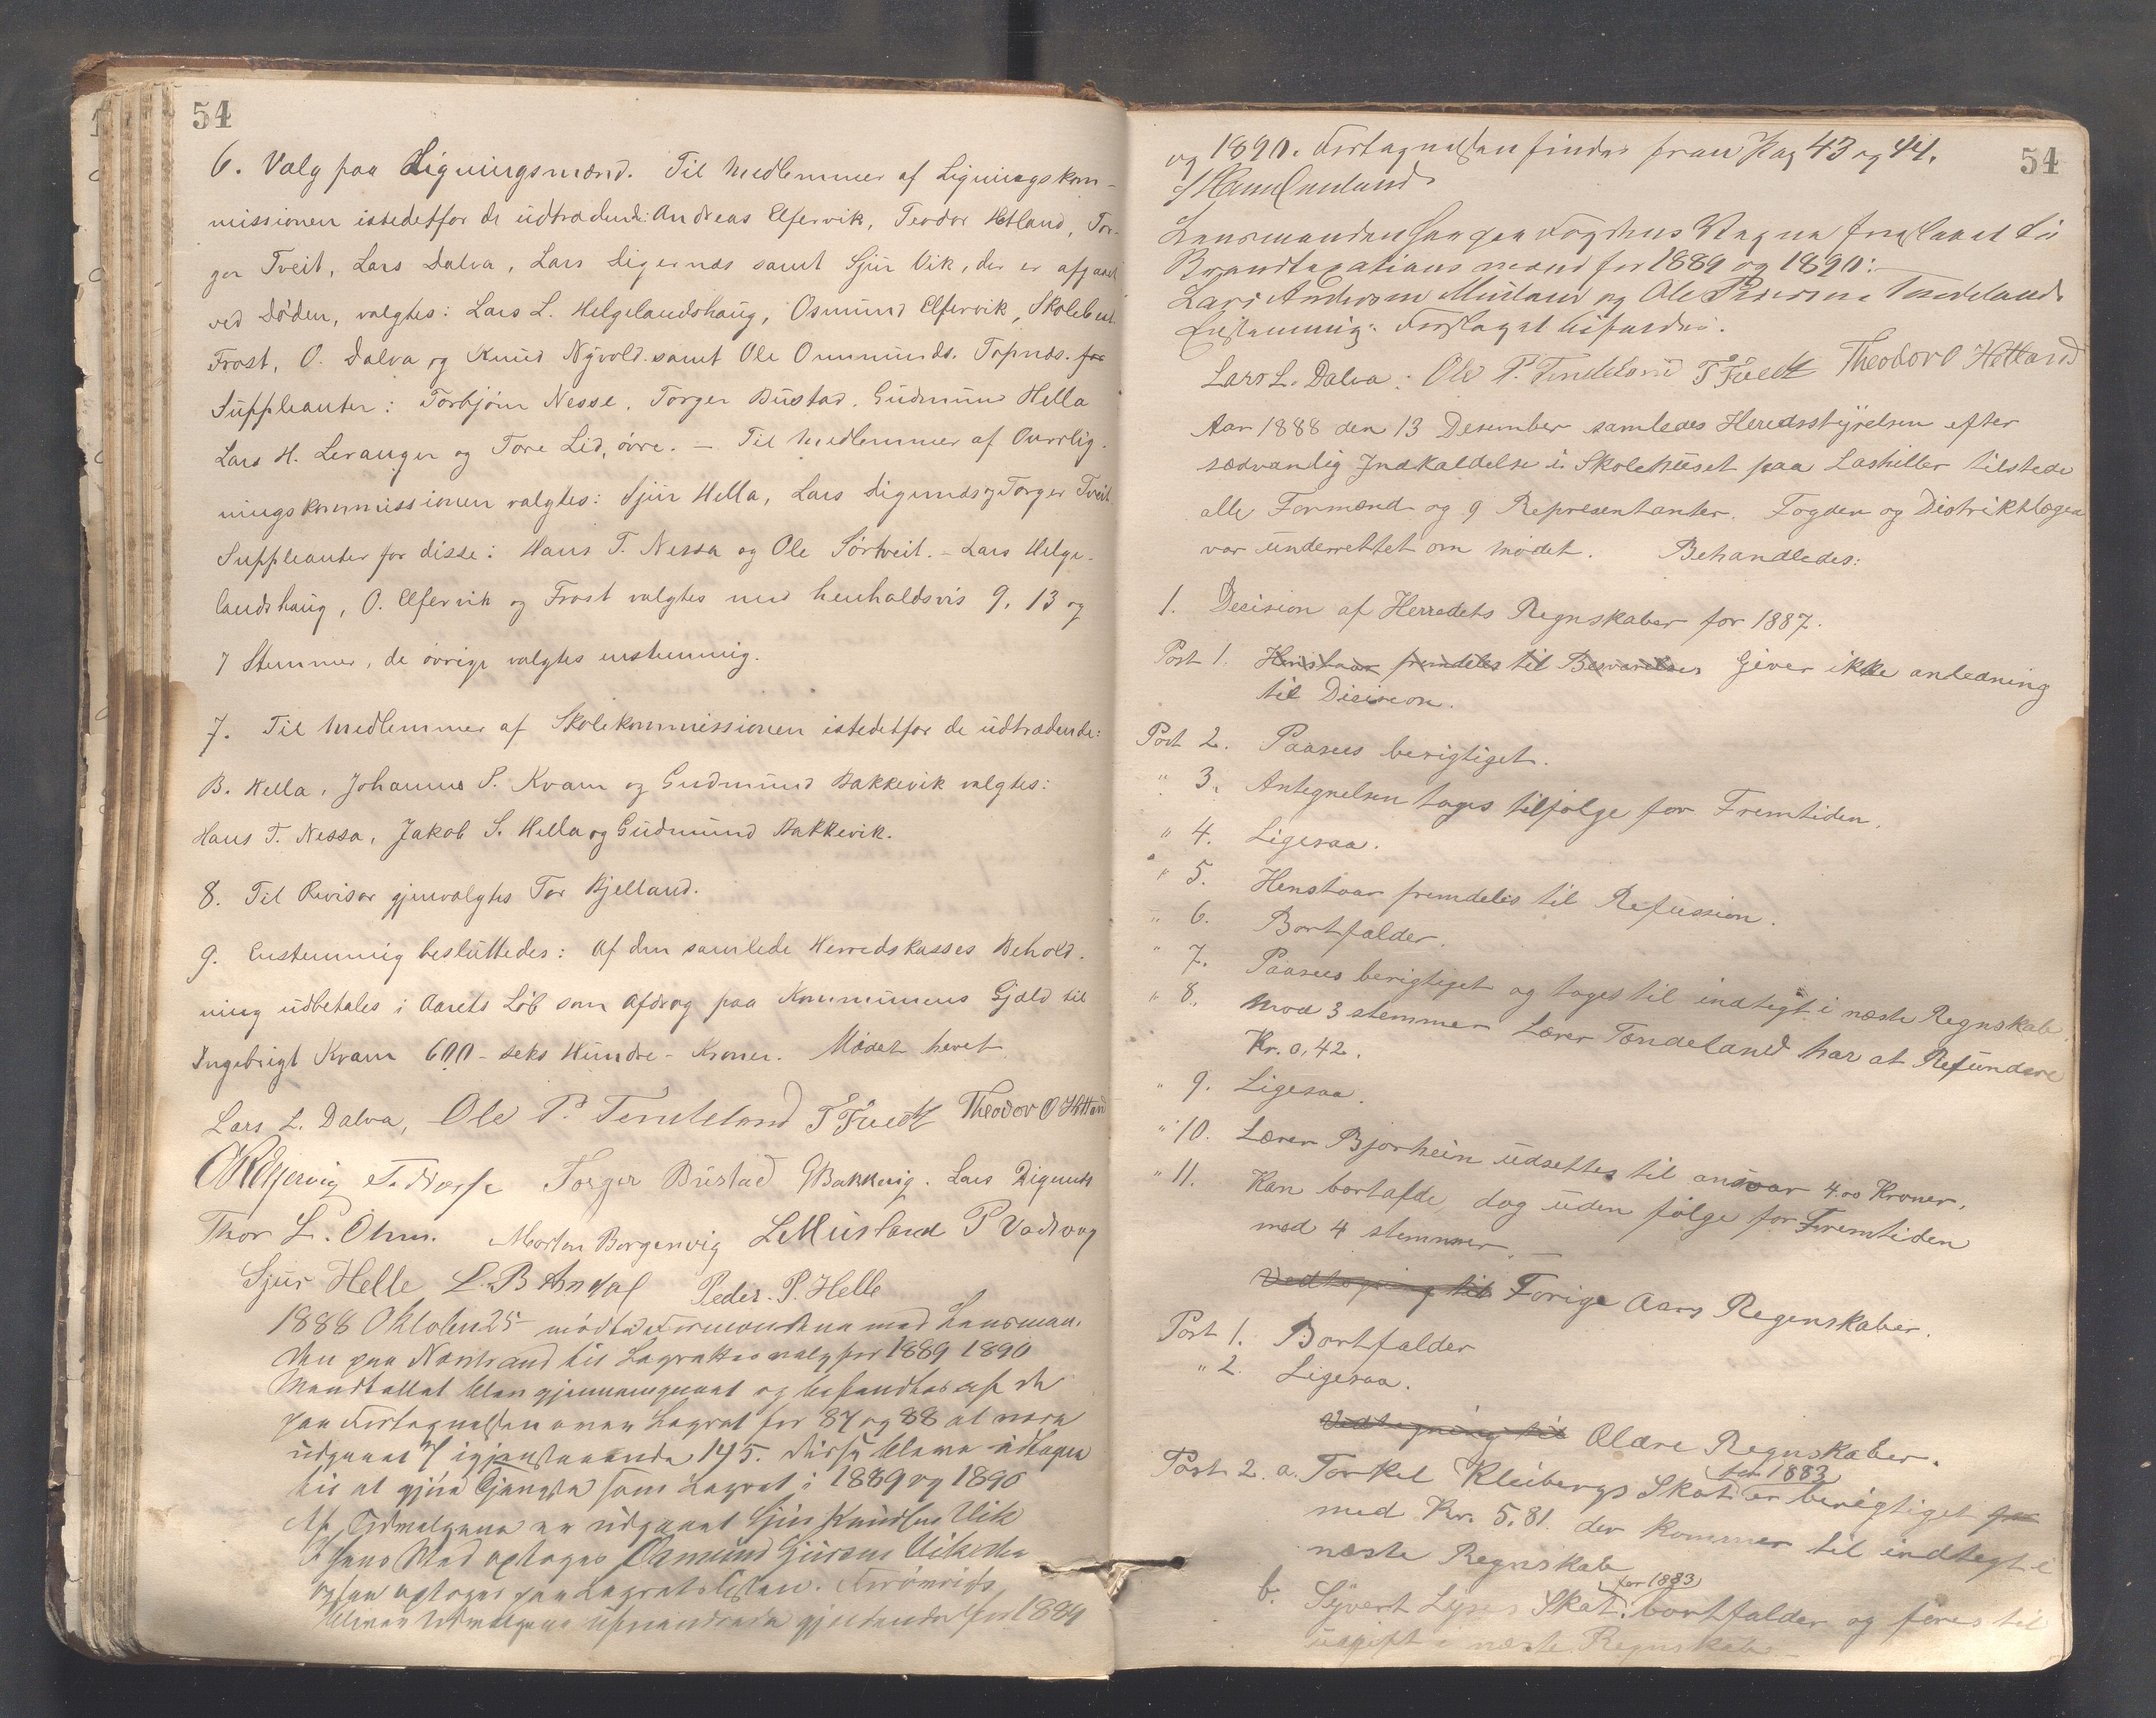 54
6. Valg paa Ligningsmænd. Til Medlemmer af Ligningskom-
missionen istedetfor de udtrædende: Andreas Elfervik, Teodor Hetland, Tor-
ger Tveit, Lars Dalva, Lars Digernæs samt Sjur Vik, der er afgaaet
ved Døden, valgtes: Lars L. Helgelandshaug, Osmund Elfervik, Skolebest.
Frost, O. Dalva og Knud Nyvold samt Ole Ommunds. Tøpnæs. for
Suppleanter: Torbjørn Nesse, Torger Bustad, Gudmund Hella
Lars H. Leranger og Tore Lid, øvre. — Til Medlemmer af Overlig-
ningskommissionen valgtes: Sjur Hella, Lars Digernæs og Torger Tveit
Suppleanter for disse: Hans T. Nessa og Ole Sørtveit. – Lars Helge-
landshaug, O. Elfervik og Frost valgtes med henholdsvis 9, 13 og
7 Stemmer, de øvrige valgtes enstemmig.
7. Til Medlemmer af Skolekommissionen istedetfor de udtrædende:
B. Hella, Johannes S. Kvam og Gudmund Bakkevik valgtes:
Hans T. Nessa, Jakob S. Hella og Gudmund Bakkevik.
8. Til Revisor gjenvalgtes Tor Bjelland.
9. Enstemmig besluttedes: Af den samlede Herredskasses Behold-
ning udbetales i Aarets Løb som Afdrag paa Kommunens Gjæld til
Ingebrigt Kvam 600 – seks Hundre – Kroner. Mødet hevet
Lars L. Dalva, Ole P. Tendeland T Tveit Theodor O Hetland
Torger Bustad GBakkevig. Lars Digernes
Thor L. Ohm. Morten Borgenvig LMusland P Vadvag
Sjur Helle L. B Andal Peder. P. Helle
1888 Oktober 25 mødte Formændene med Lensman-
den paa Narstrand til Lagrettesvalg for 1889 1890
Mandtallet blev gjennemgaaet og befandtes af de
paa Fortegnelsen over Lagret for 87 og 88 at være
udgaaet 7 igjenstaaende 145. disse bleve udtagne
til at gjøre Tjeneste som Lagret i 1889 og 1890
Af Udvalgene er udgaaet Sjur Knudsen Vik
I hans Sted optoges Osmund Sjursen
og han optoges paa Lagretslisten. Forøvrigt
bliver Udvalgene uforandrede gjældende for 1889
54
og 1890. Fortegnelsen findes foran Pag 43 og 44.
Lensmanden har paa Fogdens Vegne foreslaaet til
Brandtaxationsmænd for 1889 og 1890:
Lars Andersen Musland og Ole Pedersen Tendeland.
Enstemmig: Forslaget bifaldes.
Lars L. Dalva: Ole P. Tendeland T Tveit Theodor O Hetland
Aar 1888 den 13 Desember samledes Heredsstyrelsen efter
sædvanlig Indkaldelse i Skolehuset paa Lashiller tilstede
alle Formænd og 9 Representanter. Fogden og Distriktslægen
var underrettet om mødet. Behandledes:
1. Desision af Herredets Regnskaber for 1887.
Post 1. Henstaar fremdeles til Besvarelse Giver ikke anledning
til Desision.
Post 2. Paasees berigtiget.
" 3. Antegnelsen tages tilfølge for Fremtiden.
" 4. Ligesaa.
" 5. Henstaar fremdeles til Refussion.
" 6. Bortfalder.
" 7. Paasees berigtiget og tages til indtegt i næste Regnskab.
" 8. Mod 3 stemmer Lærer Tændeland har at Refundere
Kr. 0,42.
" 9. Ligesaa.
" 10. Lærer Bjorhein udsettes til ansvar 4.00 Kroner.
" 11. Kan bortafde, dog uden følge for Fremtiden
mod 4 stemmer. —
Vedtegning til Forige Aars Regenskaber.
Post 1. Bortfalder
" 2. Ligesaa.
Vedtegning til Oldre Regnskaber.
Post 2. a. Torkel Kleibergs Skat for 1883 er berigtiget
med Kr. 5.81. der kommer til indtegt i
næste Regnskab
b. Syvert Lyses Skat for 1883 bortfalder og føres til
udgift i næste Regnskab –